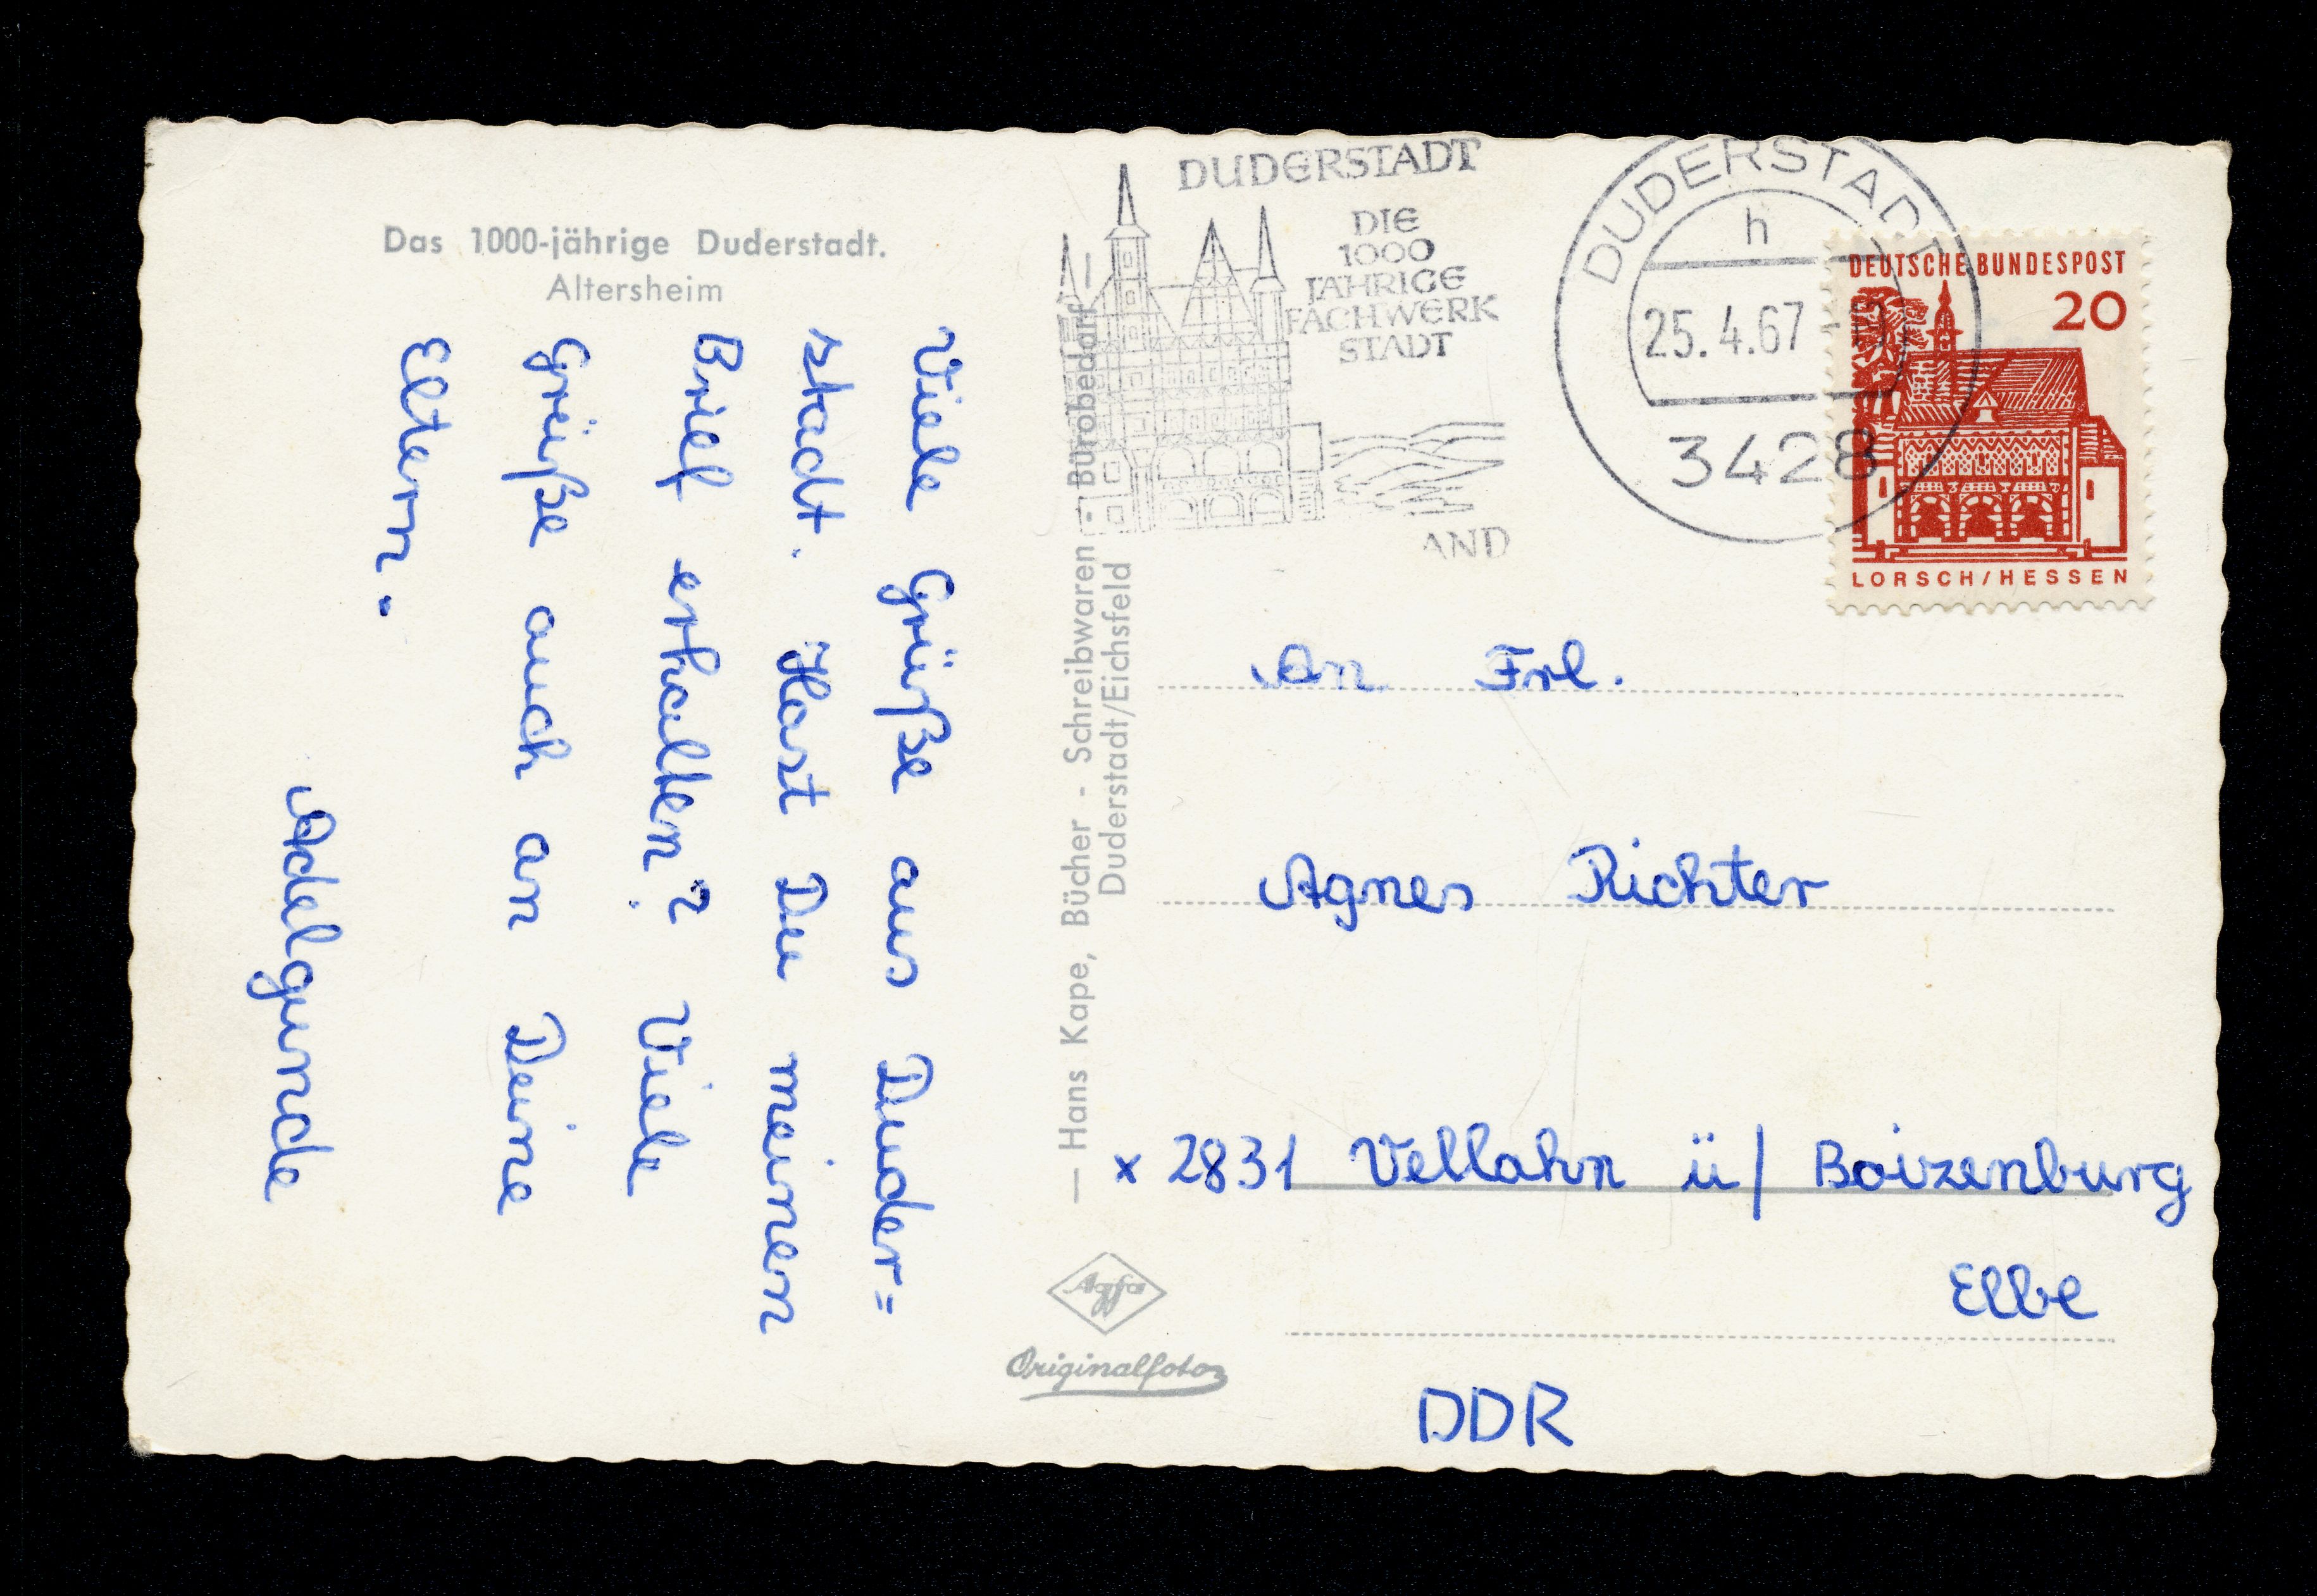 Das 1000-jährige Duderstadt.
Altersheim
Viele Grüße aus Duder=
stadt. Hast Du meinen
Brief erhalten? Viele
Grüße auch an Deine
Eltern.
Adelgunde
— Hans Kape, Bücher - Schreibwaren - Bürobedarf —
Duderstadt/Eichsfeld
Agfa
Originalfoto
DUDERSTADT
DIE
1000
JÄHRIGE
FACHWERK
STADT
AND
DUDERSTADT
h
25.4.67
3428
DEUTSCHE BUNDESPOST
20
LORSCH/HESSEN
An Frl.
Agnes Richter
x 2831 Vellahn ü/ Boizenburg
Elbe
DDR